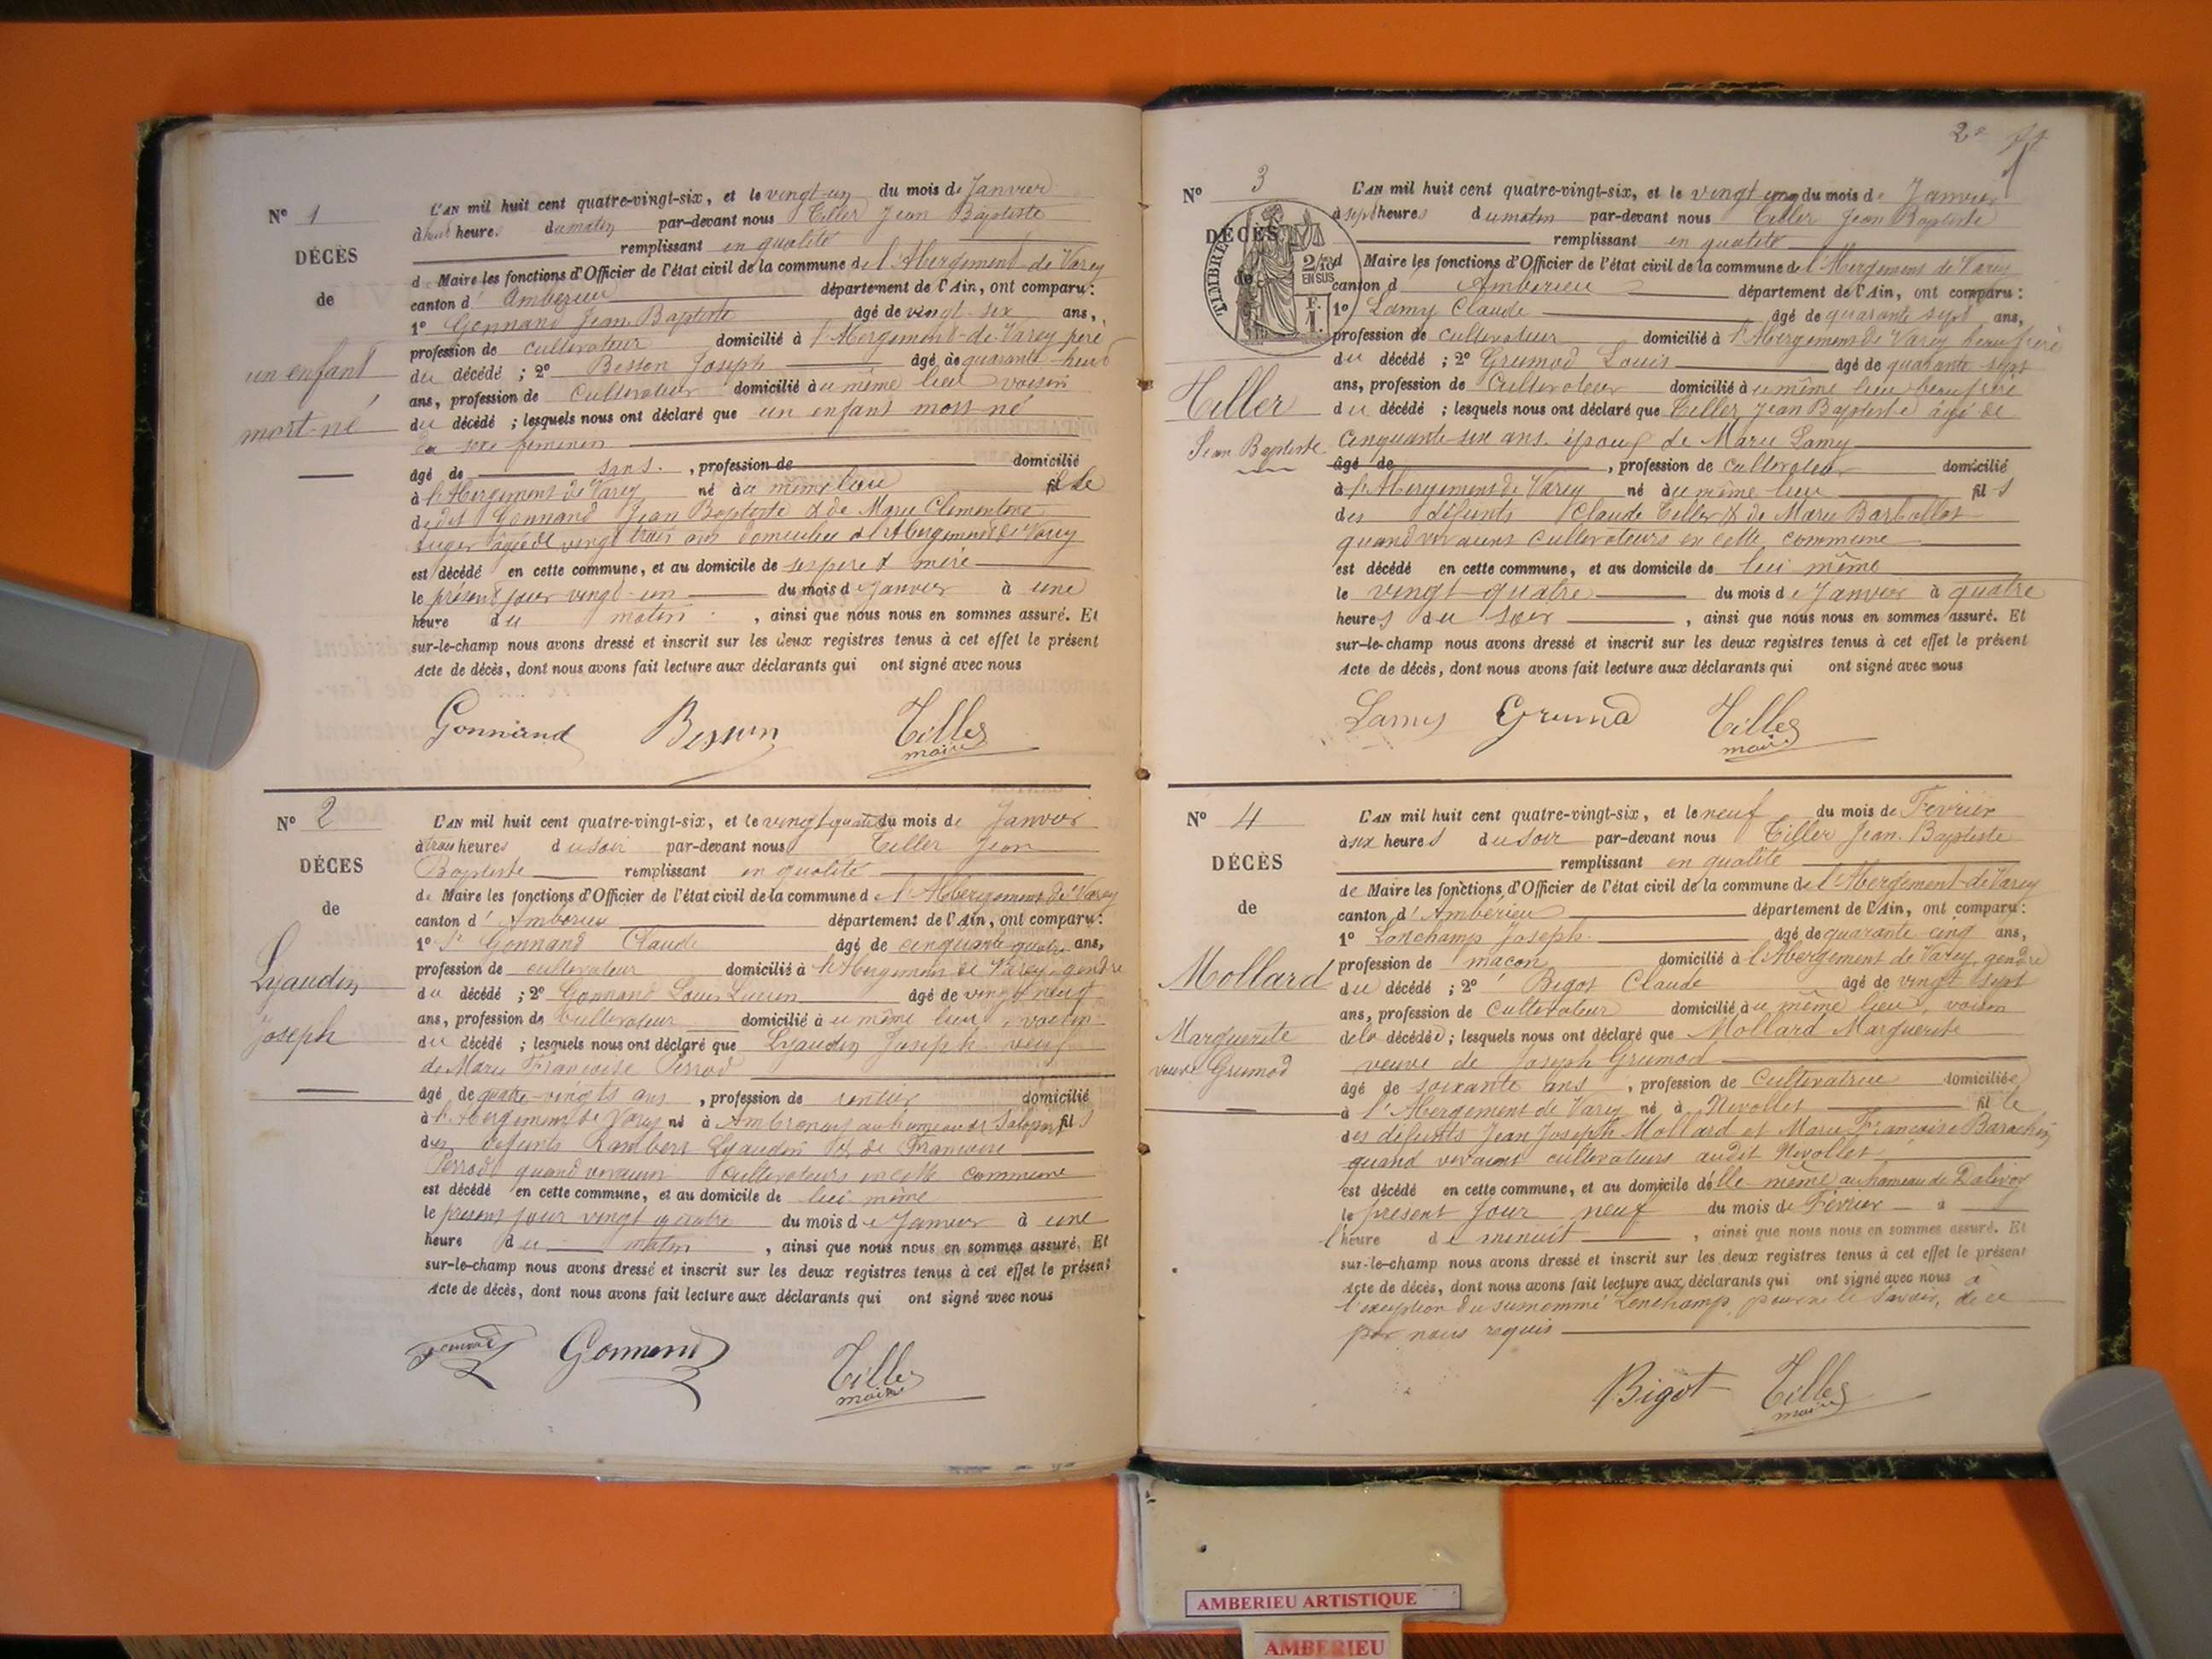 N° 1
DÉCÈS
de
un enfant
mort-né
L'AN mil huit cent quatre-vingt-six, et le vingt-un du mois de Janvier
à heures du matin par-devant nous Tiller Jean Baptiste
remplissant en qualité
de Maire les fonctions d'Officier de l'état civil de la commune de l'Abergement de Varey
canton d'Ambérieu département de l'Ain, ont comparu :
1° Gonnand Jean Baptiste âgé de vingt-six ans,
profession de cultivateur domicilié à l'Abergement-de-Varey père
du décédé ; 2° Besson Joseph âgé de quarante-neuf
ans, profession de Cultivateur domicilié au même lieu voisin
du décédé ; lesquels nous ont déclaré que un enfant mort-né
du sexe féminin
âgé de sans , profession de domicilié
à l'Abergement de Varey né au même lieu fille
de dit Gonnand Jean Baptiste & de Marie Clémentine
âgée de vingt trois ans domiciliée à l'Abergement de Varey
est décédé en cette commune, et au domicile de ses père & mère
le présent jour vingt-un du mois de Janvier à une
heure du matin , ainsi que nous nous en sommes assuré. Et
sur-le-champ nous avons dressé et inscrit sur les deux registres tenus à cet effet le présent
Acte de décès, dont nous avons fait lecture aux déclarants qui ont signé avec nous
Gonnand Besson Tiller
maire
N° 2
DÉCÈS
de
Lyaudin
Joseph
L'AN mil huit cent quatre-vingt-six, et le vingt quatre du mois de Janvier
à trois heures du soir par-devant nous Tiller Jean
Baptiste remplissant en qualité
de Maire les fonctions d'Officier de l'état civil de la commune de l'Abergement de Varey
canton d'Ambérieu département de l'Ain, ont comparu :
1° Gonnand Claude âgé de cinquante quatre ans,
profession de cultivateur domicilié à l'Abergement de Varey gendre
du décédé ; 2° Gonnand Louis Lucien âgé de vingt neuf
ans, profession de Cultivateur domicilié au même lieu, voisin
du décédé ; lesquels nous ont déclaré que Lyaudin Joseph veuf
de Marie Françoise Perrod
âgé de quatre-vingts ans , profession de rentier domicilié
à l'Abergement de Varey né à Ambronay au hameau de fils
des défunts Lambert Lyaudin & de Françoise
Perrod quand vivaient cultivateurs en cette commune
est décédé en cette commune, et au domicile de lui même
le présent jour vingt quatre du mois de Janvier à une
heure du matin , ainsi que nous nous en sommes assuré. Et
sur-le-champ nous avons dressé et inscrit sur les deux registres tenus à cet effet le présent
Acte de décès, dont nous avons fait lecture aux déclarants qui ont signé avec nous
Gonnand Tiller
maire
2e
N° 3
DÉCÈS
de
TIMBRE
2/10 EN SUS
F. 1.
Tiller
Jean Baptiste
L'AN mil huit cent quatre-vingt-six, et le vingt cinq du mois de Janvier
à sept heures du matin par-devant nous Tiller Jean Baptiste
remplissant en qualité
d Maire les fonctions d'Officier de l'état civil de la commune de l'Abergement de Varey
canton d Ambérieu département de l'Ain, ont comparu :
1° Lamy Claude âgé de quarante sept ans,
profession de cultivateur domicilié à l'Abergement de Varey beau frère
du décédé ; 2° Grumod Louis âgé de quarante sept
ans, profession de Cultivateur domicilié au même lieu beau frère
du décédé ; lesquels nous ont déclaré que Tiller Jean Baptiste âgé de
cinquante-six ans époux de Marie Lamy
âgé de , profession de cultivateur domicilié
à l'Abergement de Varey né au même lieu fils
des défunts Claude Tiller & de Marie Barbollat
quand vivaient cultivateurs en cette commune
est décédé en cette commune, et au domicile de lui même
le vingt-quatre du mois de Janvier à quatre
heures du soir , ainsi que nous nous en sommes assuré. Et
sur-le-champ nous avons dressé et inscrit sur les deux registres tenus à cet effet le présent
Acte de décès, dont nous avons fait lecture aux déclarants qui ont signé avec nous
Lamy Grumod Tiller
maire
N° 4
DÉCÈS
de
Mollard
Marguerite
veuve Grumod
L'AN mil huit cent quatre-vingt-six, et le neuf du mois de Février
à six heures du soir par-devant nous Tiller Jean Baptiste
remplissant en qualité
de Maire les fonctions d'Officier de l'état civil de la commune de l'Abergement-de-Varey
canton d'Ambérieu département de l'Ain, ont comparu :
1° Lonchamp Joseph âgé de quarante-cinq ans,
profession de maçon domicilié à l'Abergement de Varey, gendre
du décédé ; 2° Bigot Claude âgé de vingt sept
ans, profession de Cultivateur domicilié au même lieu, voisin
de la décédée ; lesquels nous ont déclaré que Mollard Marguerite
veuve de Joseph Grumod
âgé de soixante ans , profession de Cultivatrice domiciliée
à l'Abergement de Varey né à Nivollet fille
des défunts Jean Joseph Mollard et Marie Françoise Barachin
quand vivaient cultivateurs audit Nivollet
est décédé en cette commune, et au domicile d'elle même au hameau de Dalivoy
le présent jour neuf du mois de Février à
l'heure de minuit , ainsi que nous nous en sommes assuré. Et
sur-le-champ nous avons dressé et inscrit sur les deux registres tenus à cet effet le présent
Acte de décès, dont nous avons fait lecture aux déclarants qui ont signé avec nous à
l'exception du surnommé Lonchamp pour ne le savoir, de ce
par nous requis
Bigot Tiller
maire
AMBERIEU ARTISTIQUE
AMBERIEU